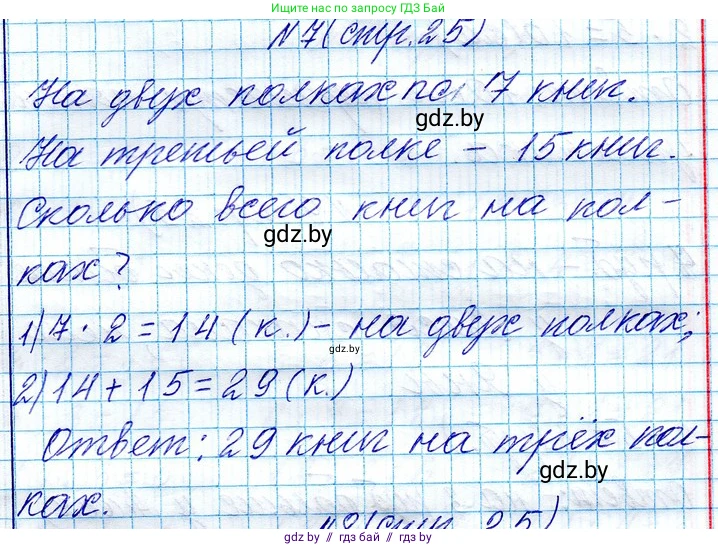 Ищите нас в поисковиках по фразе "гдз бай"
№7(стр.25)
На двух полках по 7 книг.
gdz.by
На третьей полке – 15 книг.
Сколько всего книг на пол-
gdz.by
ках?
1) 7 · 2 = 14 (к.) – на двух полках;
gdz.by
2) 14 + 15 = 29 (к.)
Ответ: 29 книг на трёх пол-
gdz.by
ках.
№8(стр.25)
gdz.by | гдз бай | гдз.бай